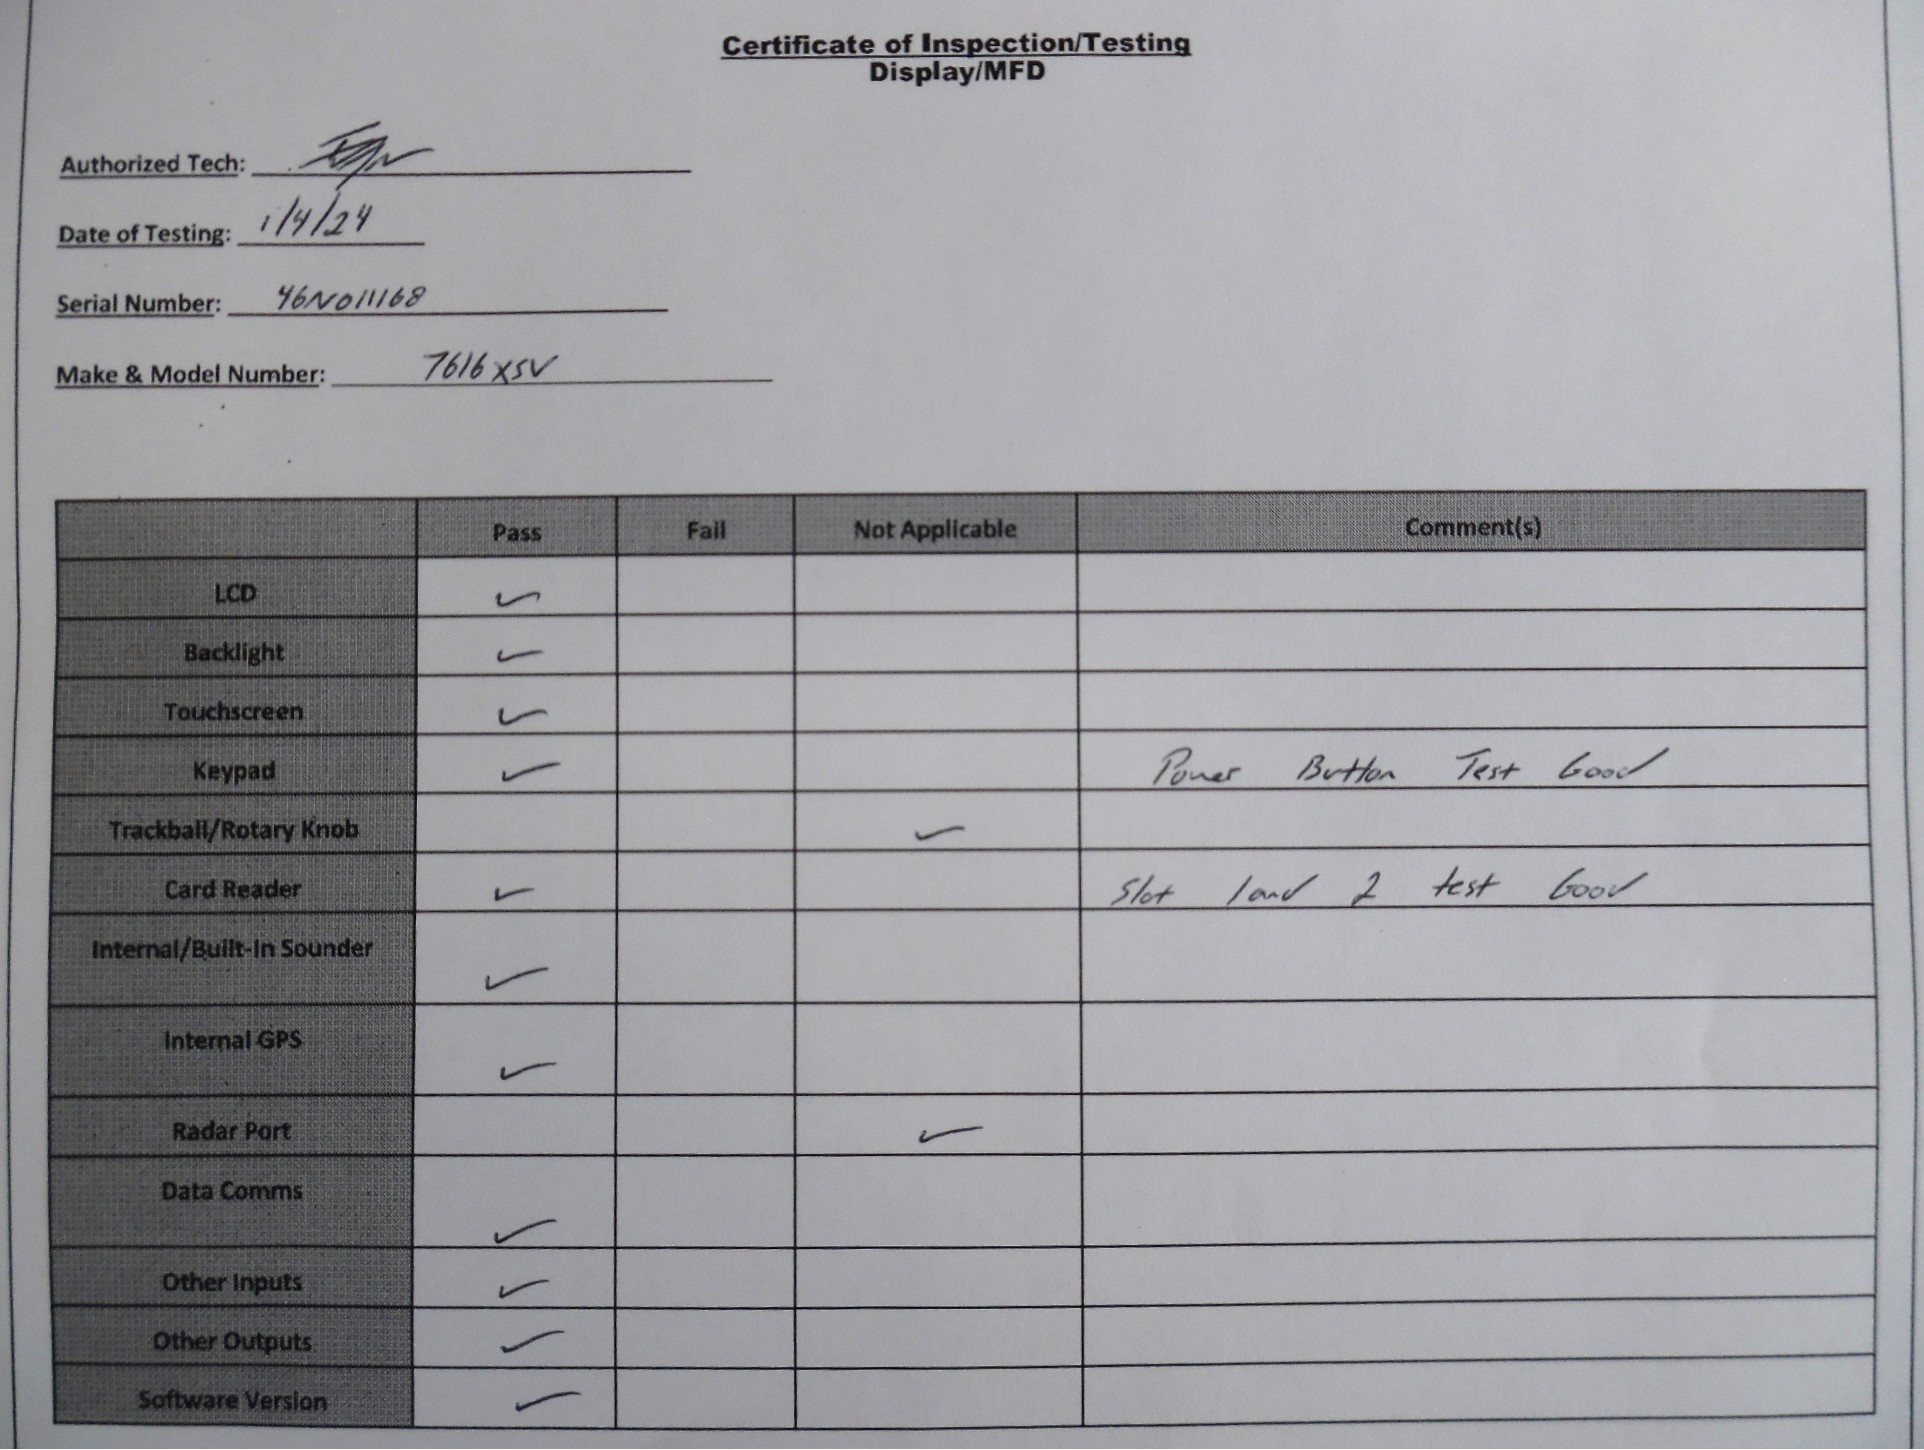 Certificate of Inspection/Testing
Display/MFD
Authorized Tech:
Date of Testing: 1/4/24
Serial Number: 46N011168
Make & Model Number: 7616xsv
Pass Fail Not Applicable Comment(s)
LCD ✓
Backlight ✓
Touchscreen ✓
Keypad ✓ Power Button Test Good
Trackball/Rotary Knob ✓
Card Reader ✓ Slot 1 and 2 test Good
Internal/Built-In Sounder ✓
Internal GPS ✓
Radar Port ✓
Data Comms ✓
Other Inputs ✓
Other Outputs ✓
Software Version ✓